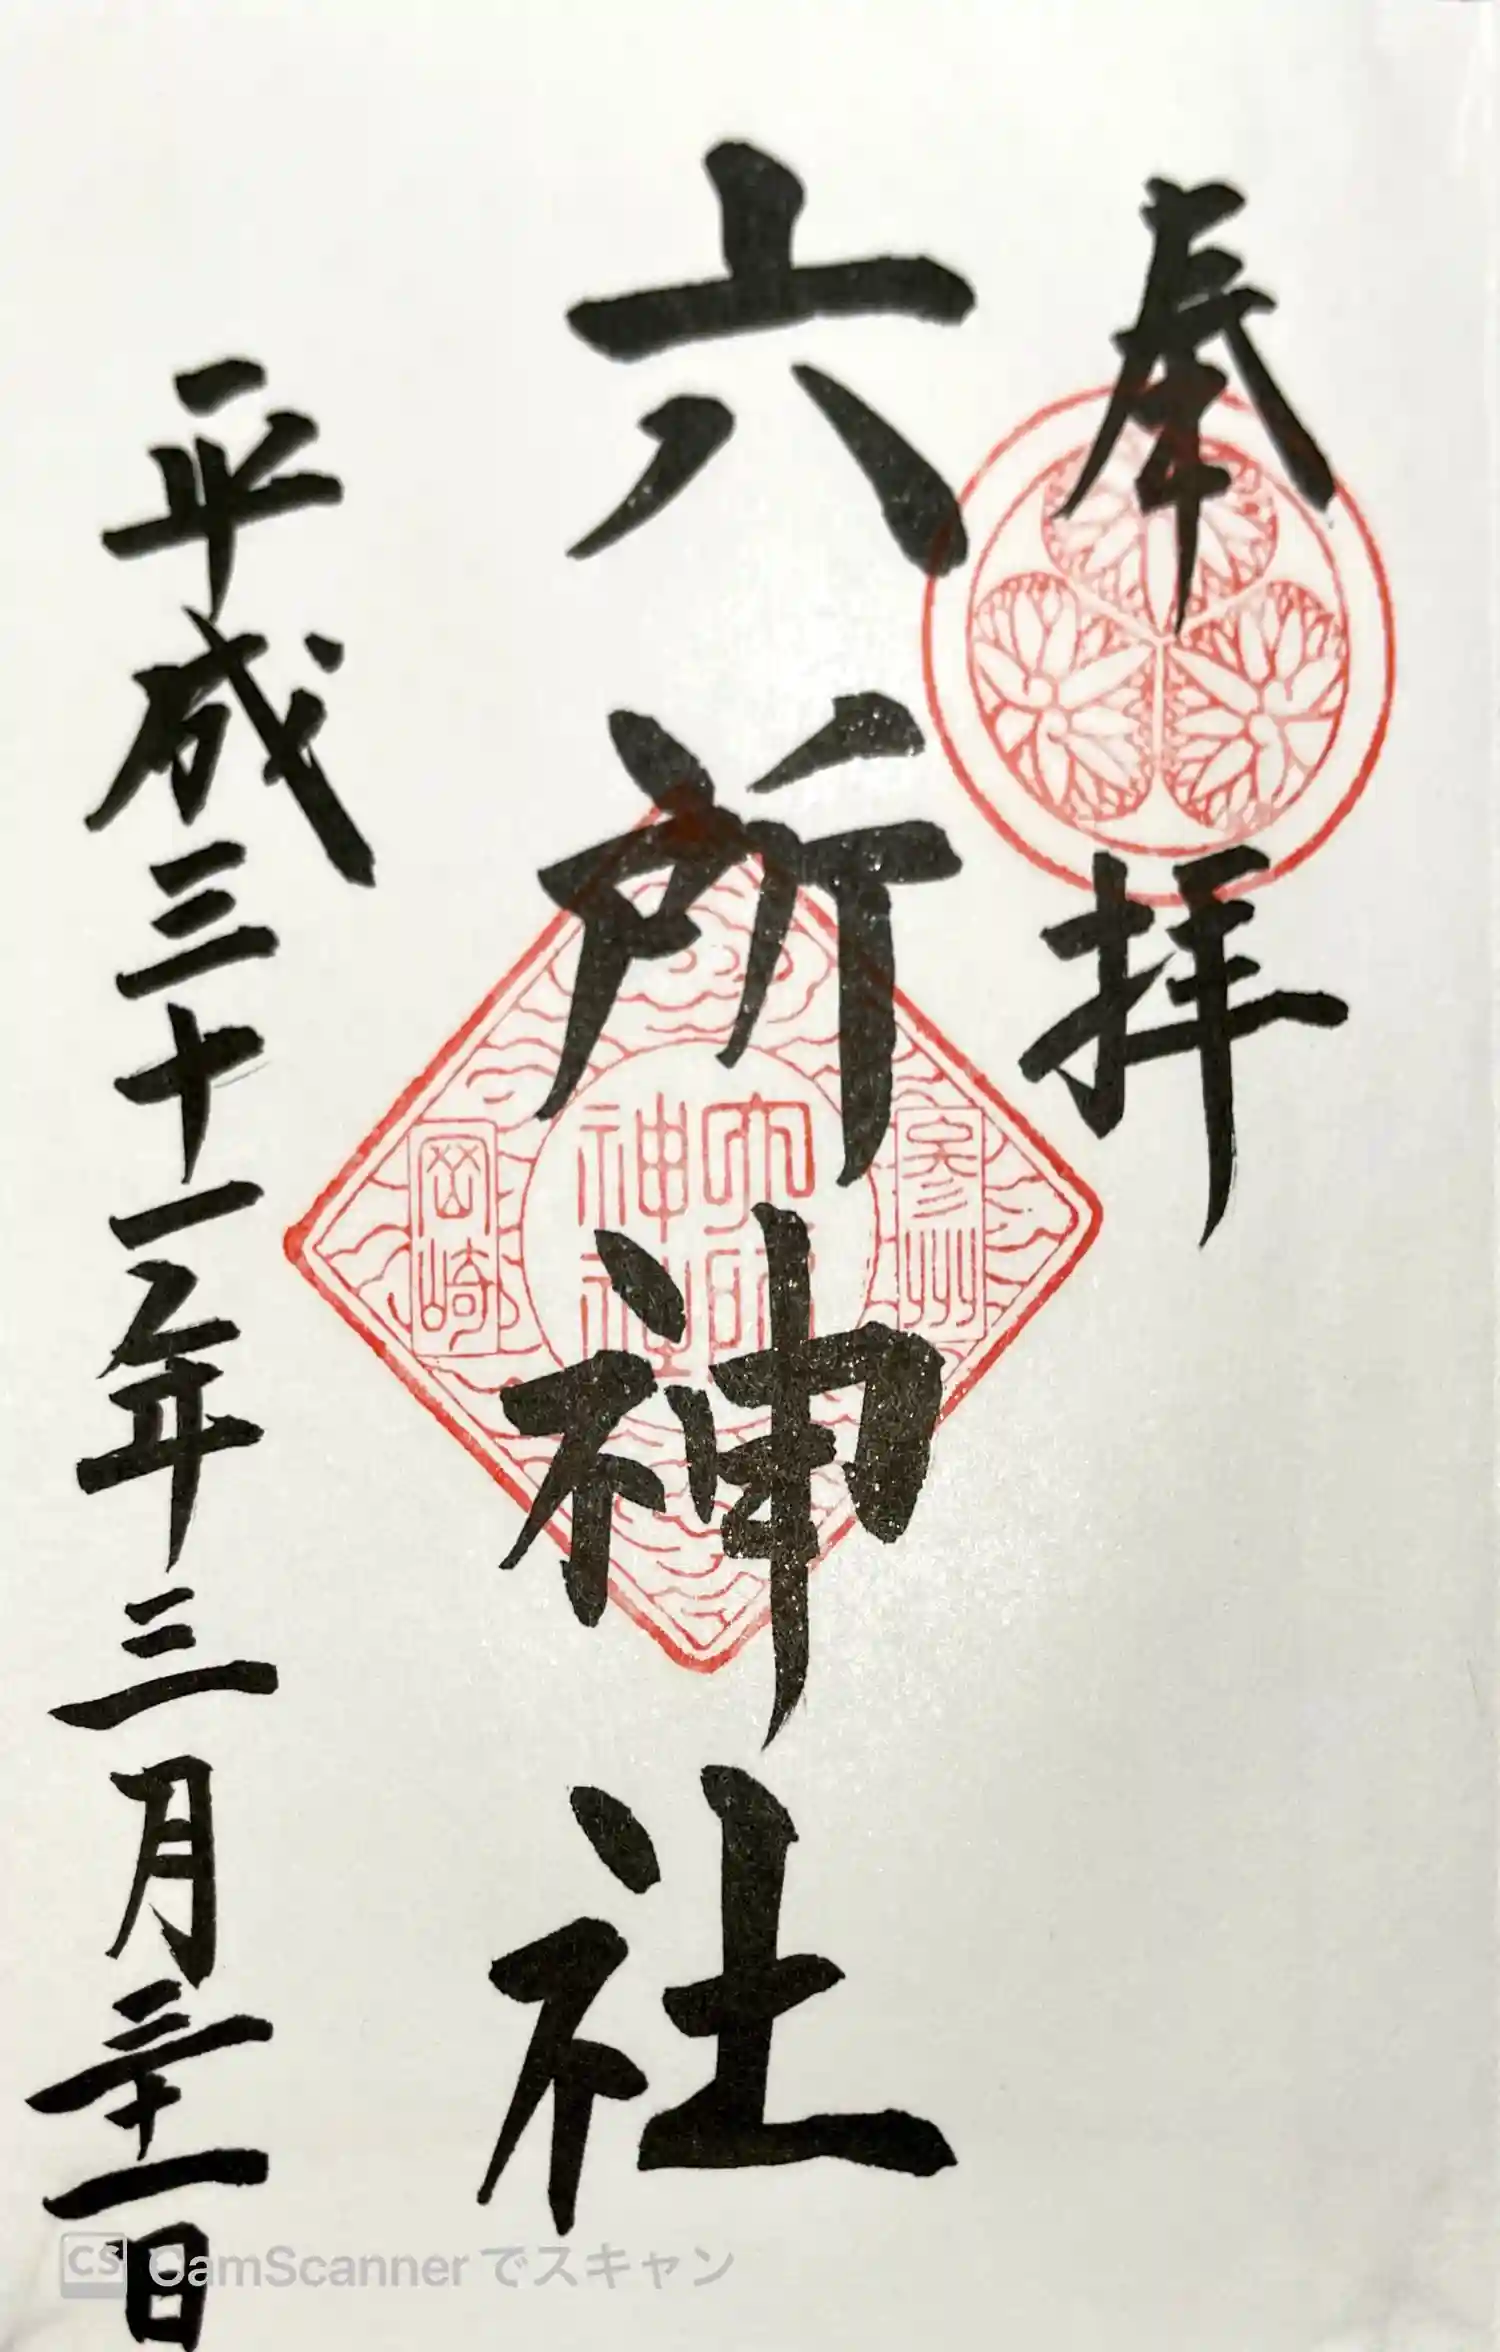 奉拝
六所神社
参州
六所神社
岡崎
平成三十一年三月三十一日
CS CamScannerでスキャン